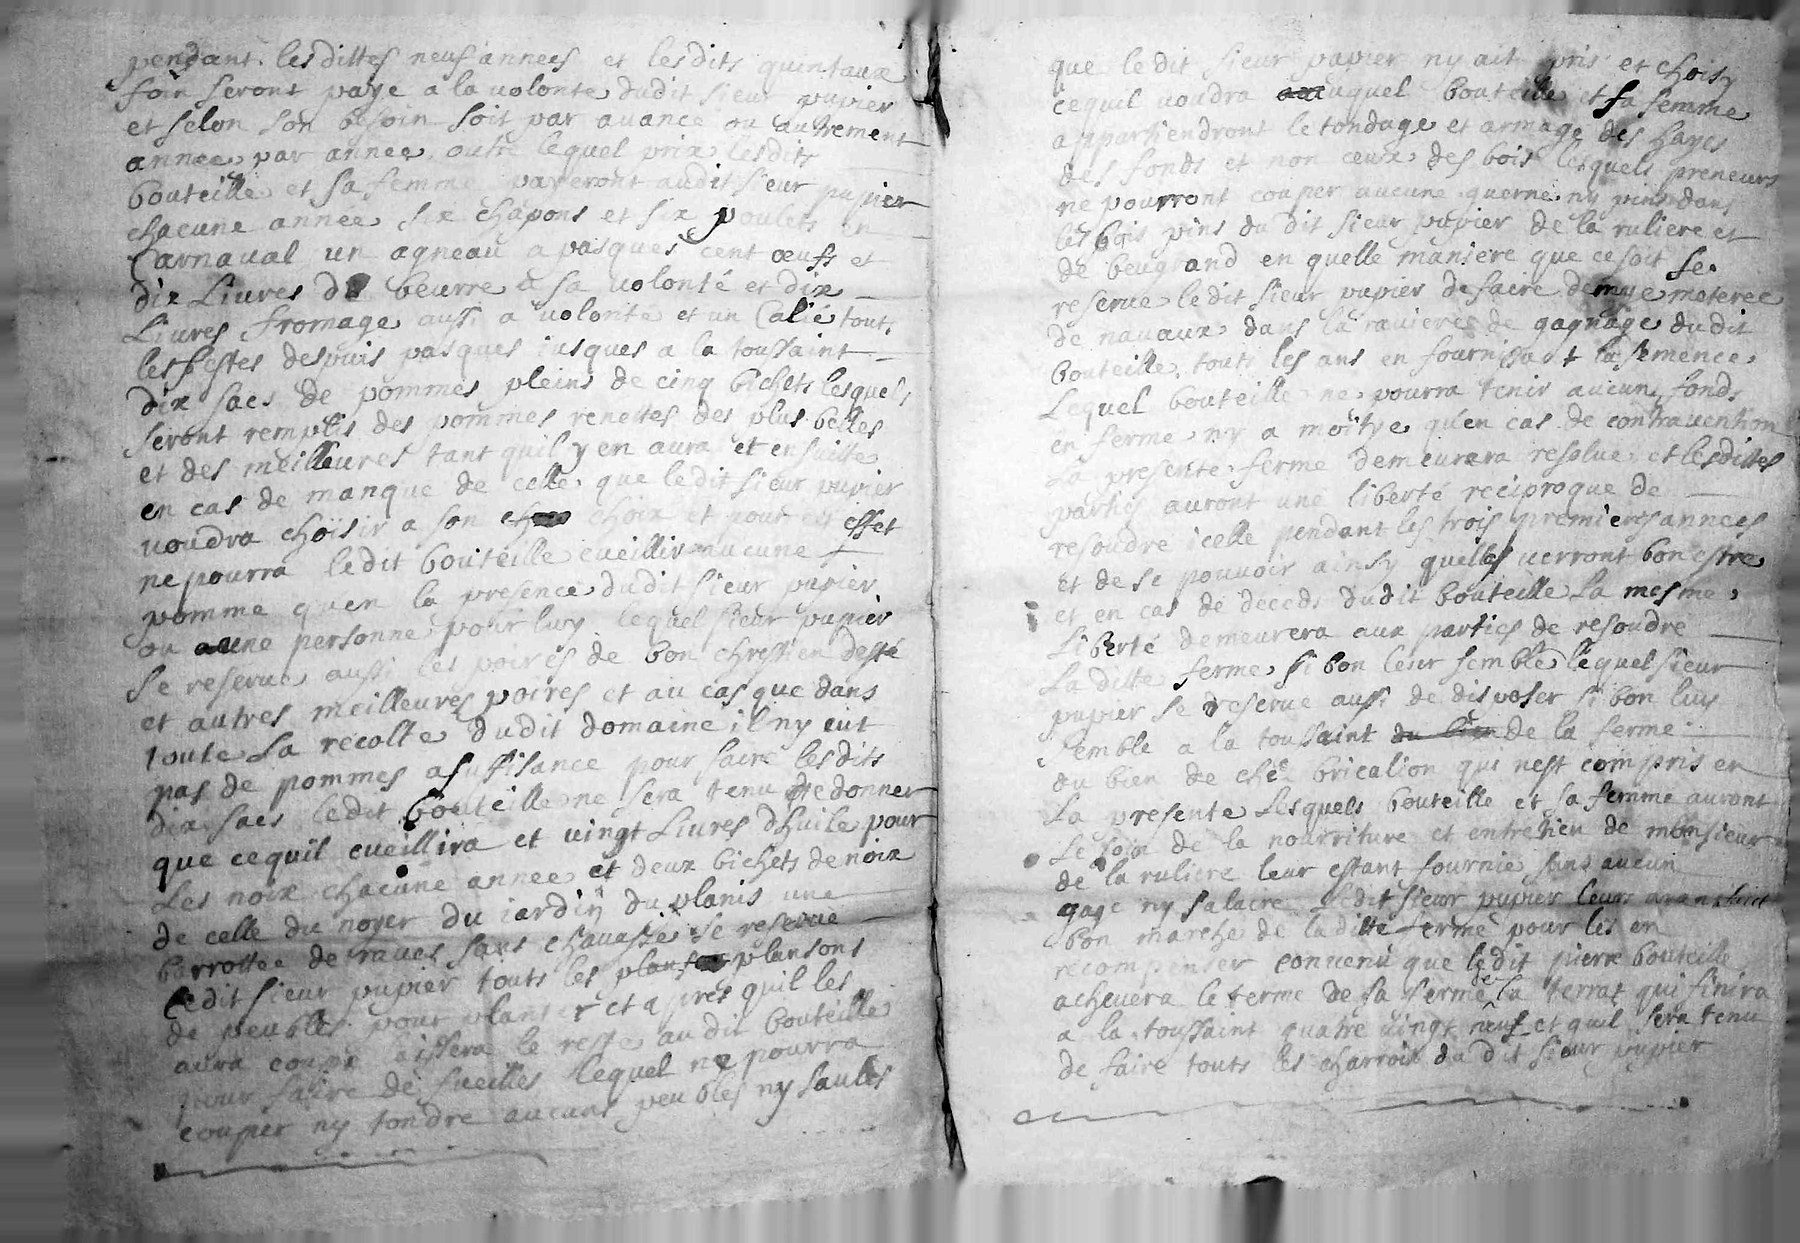 pendant lesdittes neuf années et lesdits quintaux
foin seront payé a la volonte dudit sieur pupier
et selon son besoin soit par avance ou autrement
année par année outre lequel prix lesdits
bouteille et sa femme payeront audit sieur pupier
chacune année six chapons et six poulets en
Carnaval un agneau a pasques cent œufs et
dix Livres de beurre a sa volonté et dix
Livres fromage aussi a volonte et un Calié tout
les festes despuis pasques jusques a la toussaint
dix sacs de pommes pleins de cinq bichets lesquels
seront remplis des pommes renettes des plus belles
et des meilleures tant quil y en aura et ensuitte
en cas de manque de celle que ledit sieur pupier
voudra choisir a son choix et pour cet effet
ne pourra ledit bouteille cueillir aucune
pomme quen la presence dudit sieur pupier
ou une personne pour luy lequel sieur pupier
se reserve aussi les poires de bon chrestien desté
et autres meilleures poires et au cas que dans
toute La recolte dudit domaine il ny eut
pas de pommes a suffisance pour faire lesdits
dix sacs ledit bouteille ne sera tenu de donner
que cequil cueillira et vingt Livres dhuile pour
Les noix chacune année et deux bichets de noix
de celle du noyer du jardin du planis une
barrottée de raves sans chavasse se reserve
ledit sieur pupier touts les plansons
de peubles pour planter et apres quil les
aura coupé laissera le reste audit bouteille
pour faire de fueilles lequel ne pourra
couper ny tondre aucuns peubles ny saules
que ledit sieur pupier ny ait pris et choisy
cequil voudra auquel bouteille et sa femme
appartiendront le tondage et armage des hayes
des fonds et non ceux des bois lesquels preneurs
ne pourront couper aucune querne ny pins dans
les bois pins du dit sieur pupier de la ruliere et
de beugrand en quelle maniere que ce soit se
reserve ledit sieur pupier de faire demye meteree
de navaux dans la raviere de gagnage dudit
bouteille touts les ans en fournissant la semence
Lequel bouteille ne pourra tenir aucun fonds
en ferme ny a moitye quen cas de contravention
La presente ferme demeurera resolue et lesdittes
parties auront une liberté reciproque de
resoudre icelle pendant les trois premieres années
et de se pouvoir ainsy quelles verront bon estre
et en cas de deceds dudit bouteille La mesme
Liberté demeurera aux parties de resoudre
La ditte ferme si bon leur semble lequel sieur
pupier se reserve aussi de disposer si bon luy
semble a la toussaint du bien de la ferme
du bien de chez bricalion qui nest compris en
La presente Lesquels bouteille et sa femme auront
Le soin de la nourriture et entretien de monsieur
de la ruliere leur estant fournie sans aucun
gage ny salaire ledit sieur pupier leurs ayant fait
bon marché de laditte ferme pour les en
recompenser convenu que ledit pierre bouteille
achevera le terme de sa ferme de La terrat qui finira
a la toussaint quatre vingt neuf et quil sera tenu
de faire touts les charrois du dit sieur pupier